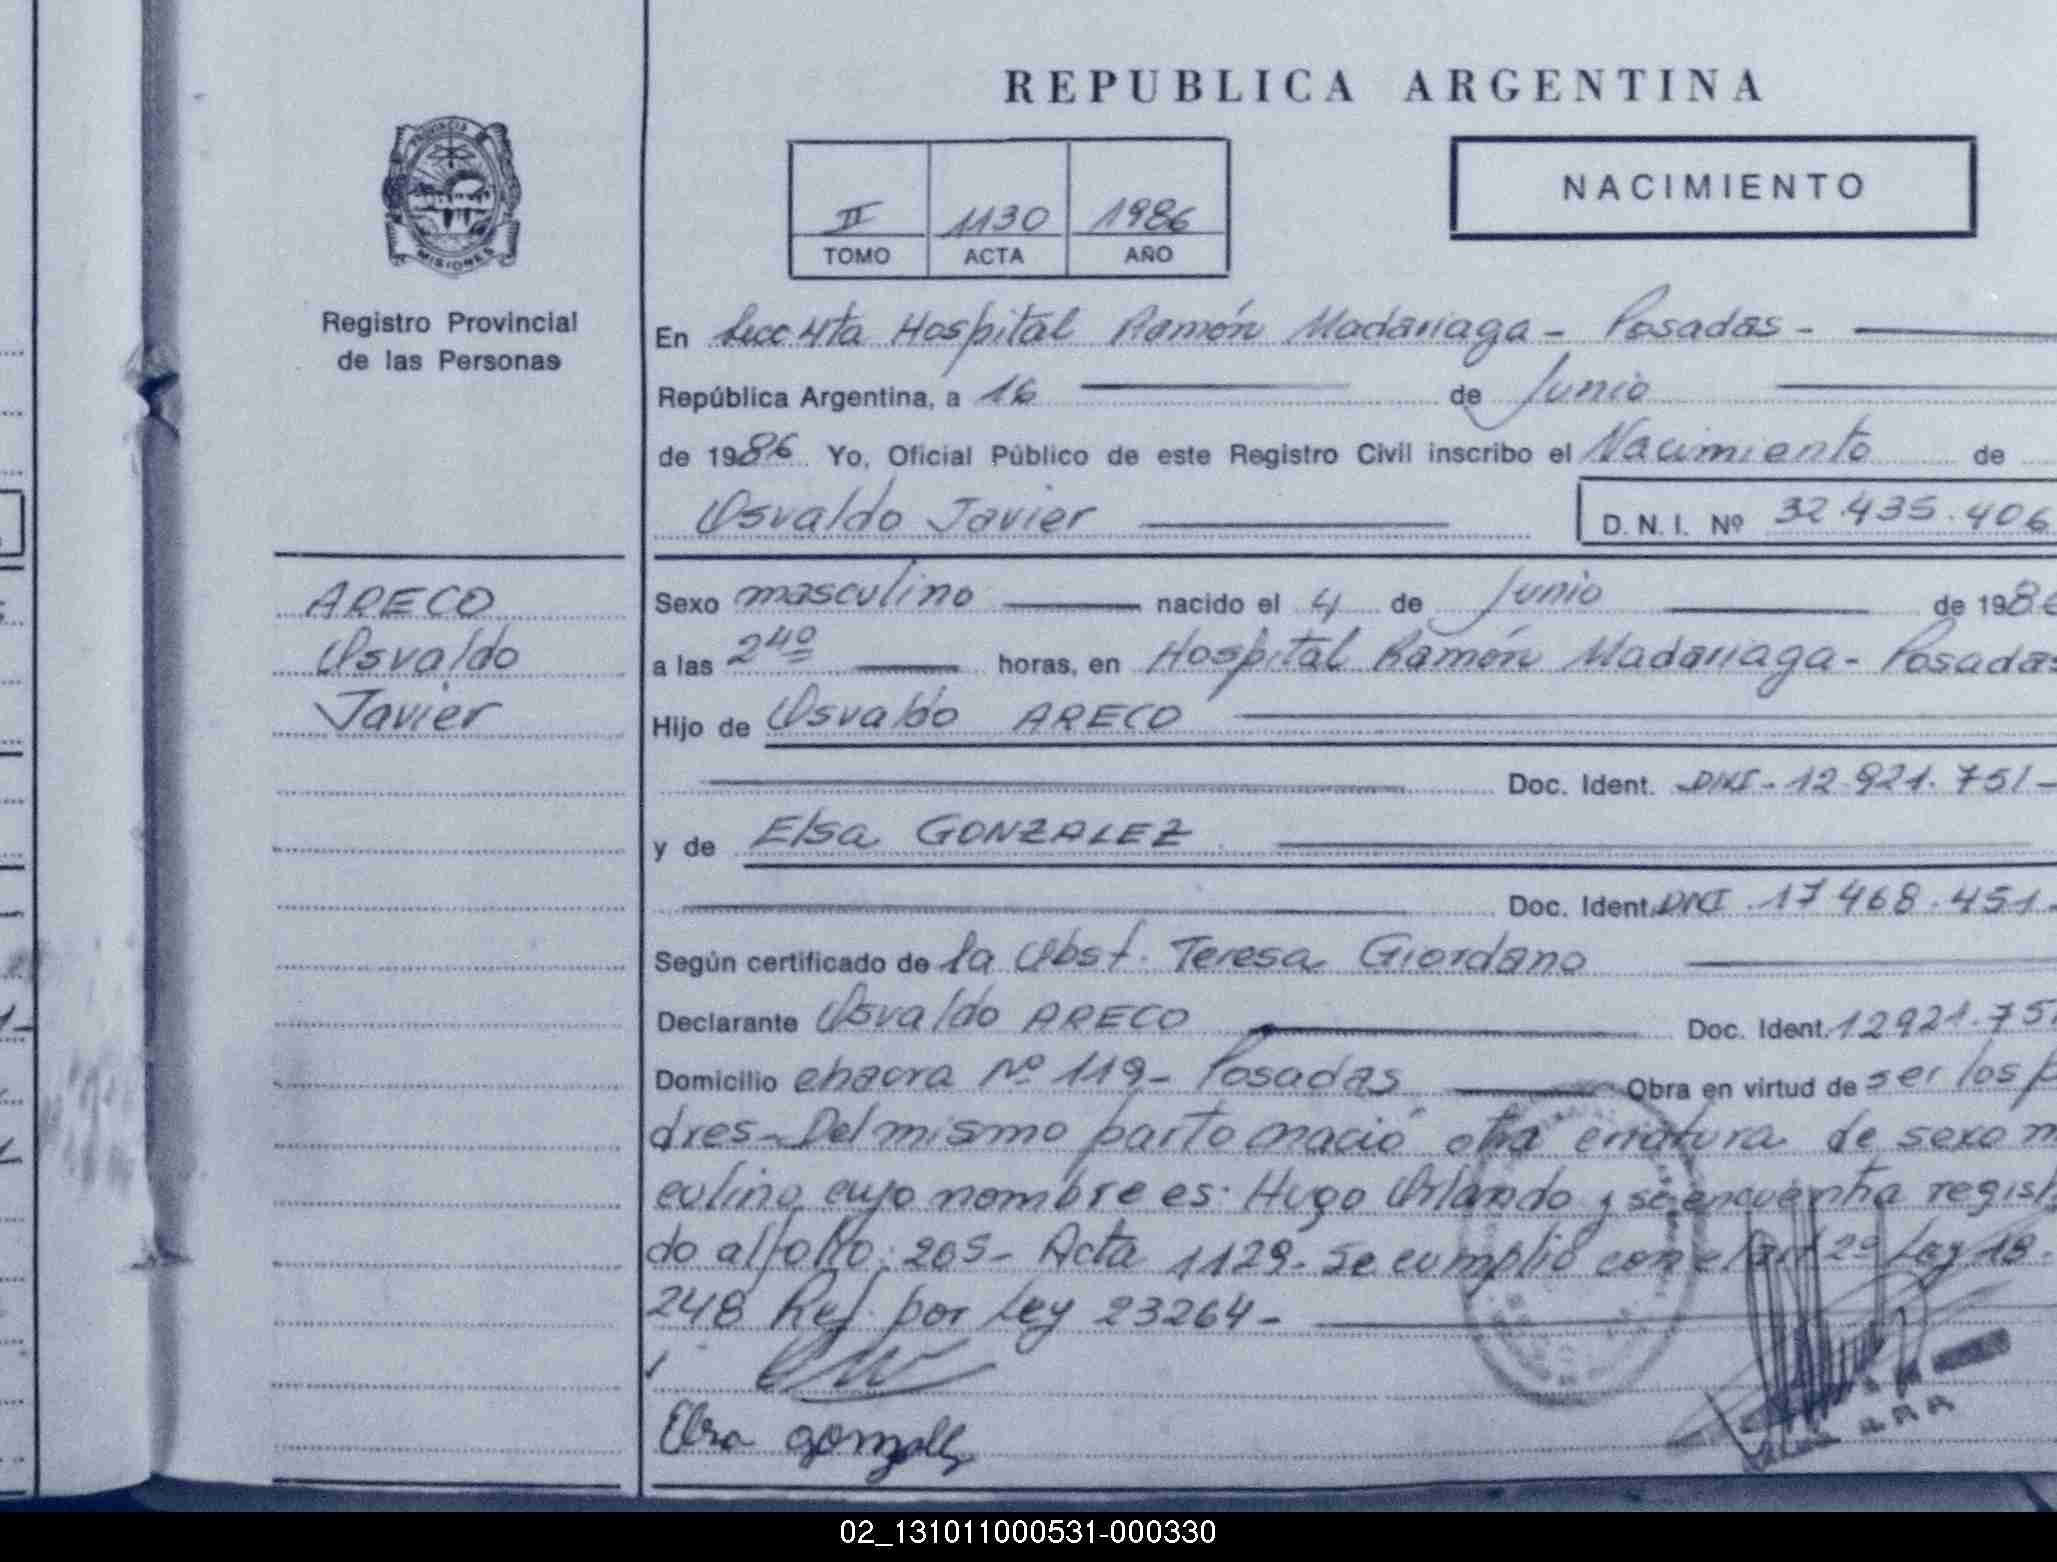 REPUBLICA ARGENTINA
PROVINCIA DE
MISIONES
Registro Provincial
de las Personas
II 1130 1986
TOMO ACTA AÑO
NACIMIENTO
En Secc 4ta Hospital Ramón Madariaga - Posadas -
República Argentina, a 16 de Junio
de 1986 Yo, Oficial Público de este Registro Civil inscribo el Nacimiento de
Osvaldo Javier D. N. I. Nº 32.435.406
ARECO
Osvaldo
Javier
Sexo masculino nacido el 4 de Junio de 1986
a las 2 40 horas, en Hospital Ramón Madariaga - Posadas
Hijo de Osvaldo ARECO
Doc. Ident. DNI - 12.921.751 -
y de Elsa GONZALEZ
Doc. Ident. DNI . 17 468.451 -
Según certificado de la Obst. Teresa Giordano
Declarante Osvaldo ARECO Doc. Ident. 12921.751
Domicilio chacra Nº 119 - Posadas Obra en virtud de ser los p
dres - Del mismo parto nació otra criatura de sexo m
culino cuyo nombre es: Hugo Orlando y se encuentra regist
do al folio: 205 - Acta 1129 - Se cumplió con el art 2º Ley 18.
248 Ref. por Ley 23264 -
Elsa gonzalez
02_131011000531-000330